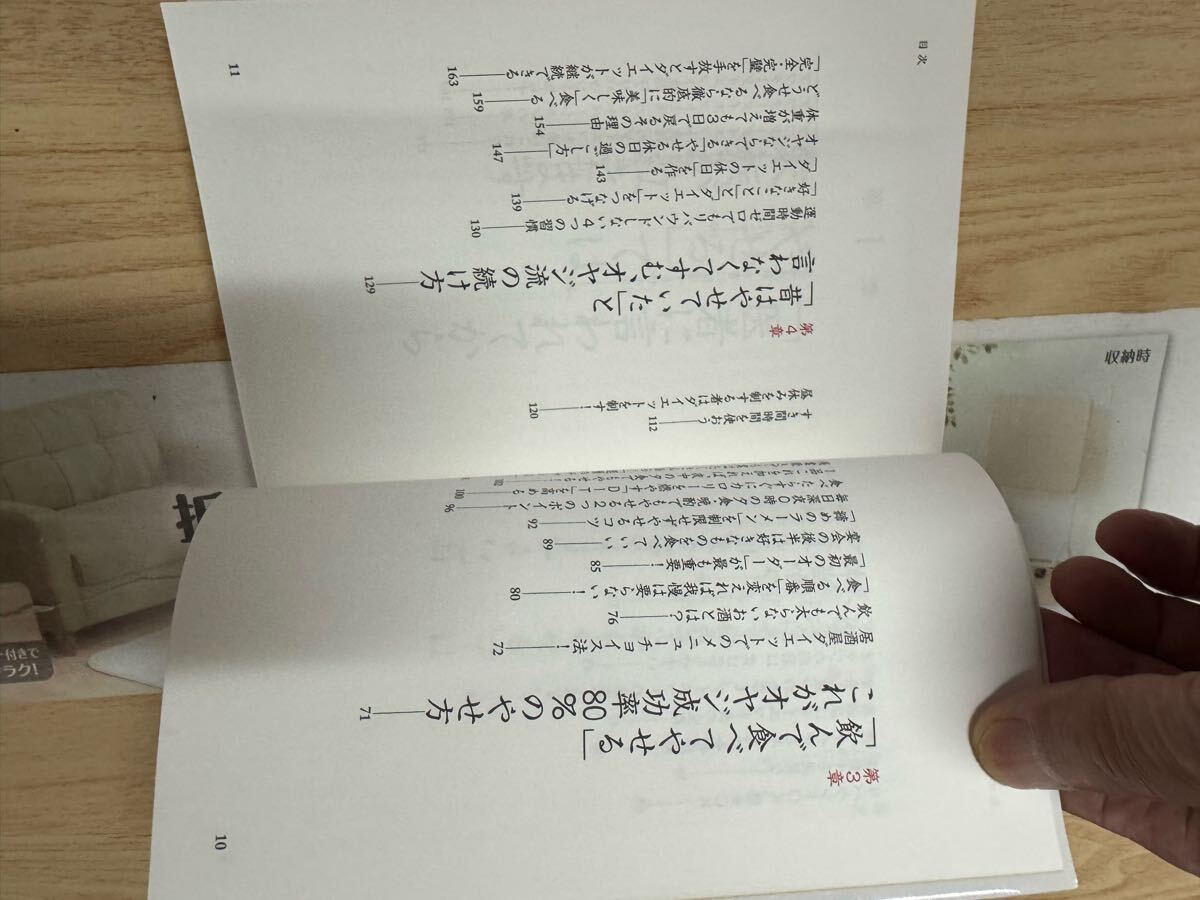 第3章
「飲んで食べてやせる」
これがオヤジ成功率80%のやせ方 71
居酒屋ダイエットでのメニューチョイス法! 72
飲んでも太らないお酒とは? 76
「食べる順番」を変えれば我慢は要らない! 80
「最初のオーダー」が最も重要! 85
宴会の後半は好きなものを食べていい 89
「締めのラーメン」を制限せずやせるコツ 92
毎日深夜0時の夕食・晩酌でもやせる2つのポイント 96
食べたらすぐにカロリーを燃やす「DIT」を高める 100
102
10
すき間時間を使おう 112
昼休みを制する者はダイエットを制す! 120
第4章
「昔はやせていた」と
言わなくてすむ、オヤジ流の続け方 129
運動時間ゼロでもリバウンドしない4つの習慣 130
「好きなこと」と「ダイエット」をつなげる 139
「ダイエットの休日」を作る 143
オヤジならできる「やせる休日の過ごし方」 147
体重が増えても3日で戻るその理由 154
どうせ食べるなら徹底的に「美味しく」食べる 159
「完全・完璧」を手放すとダイエットが継続できる 163
目次
11
収納時
付きで
ラク!